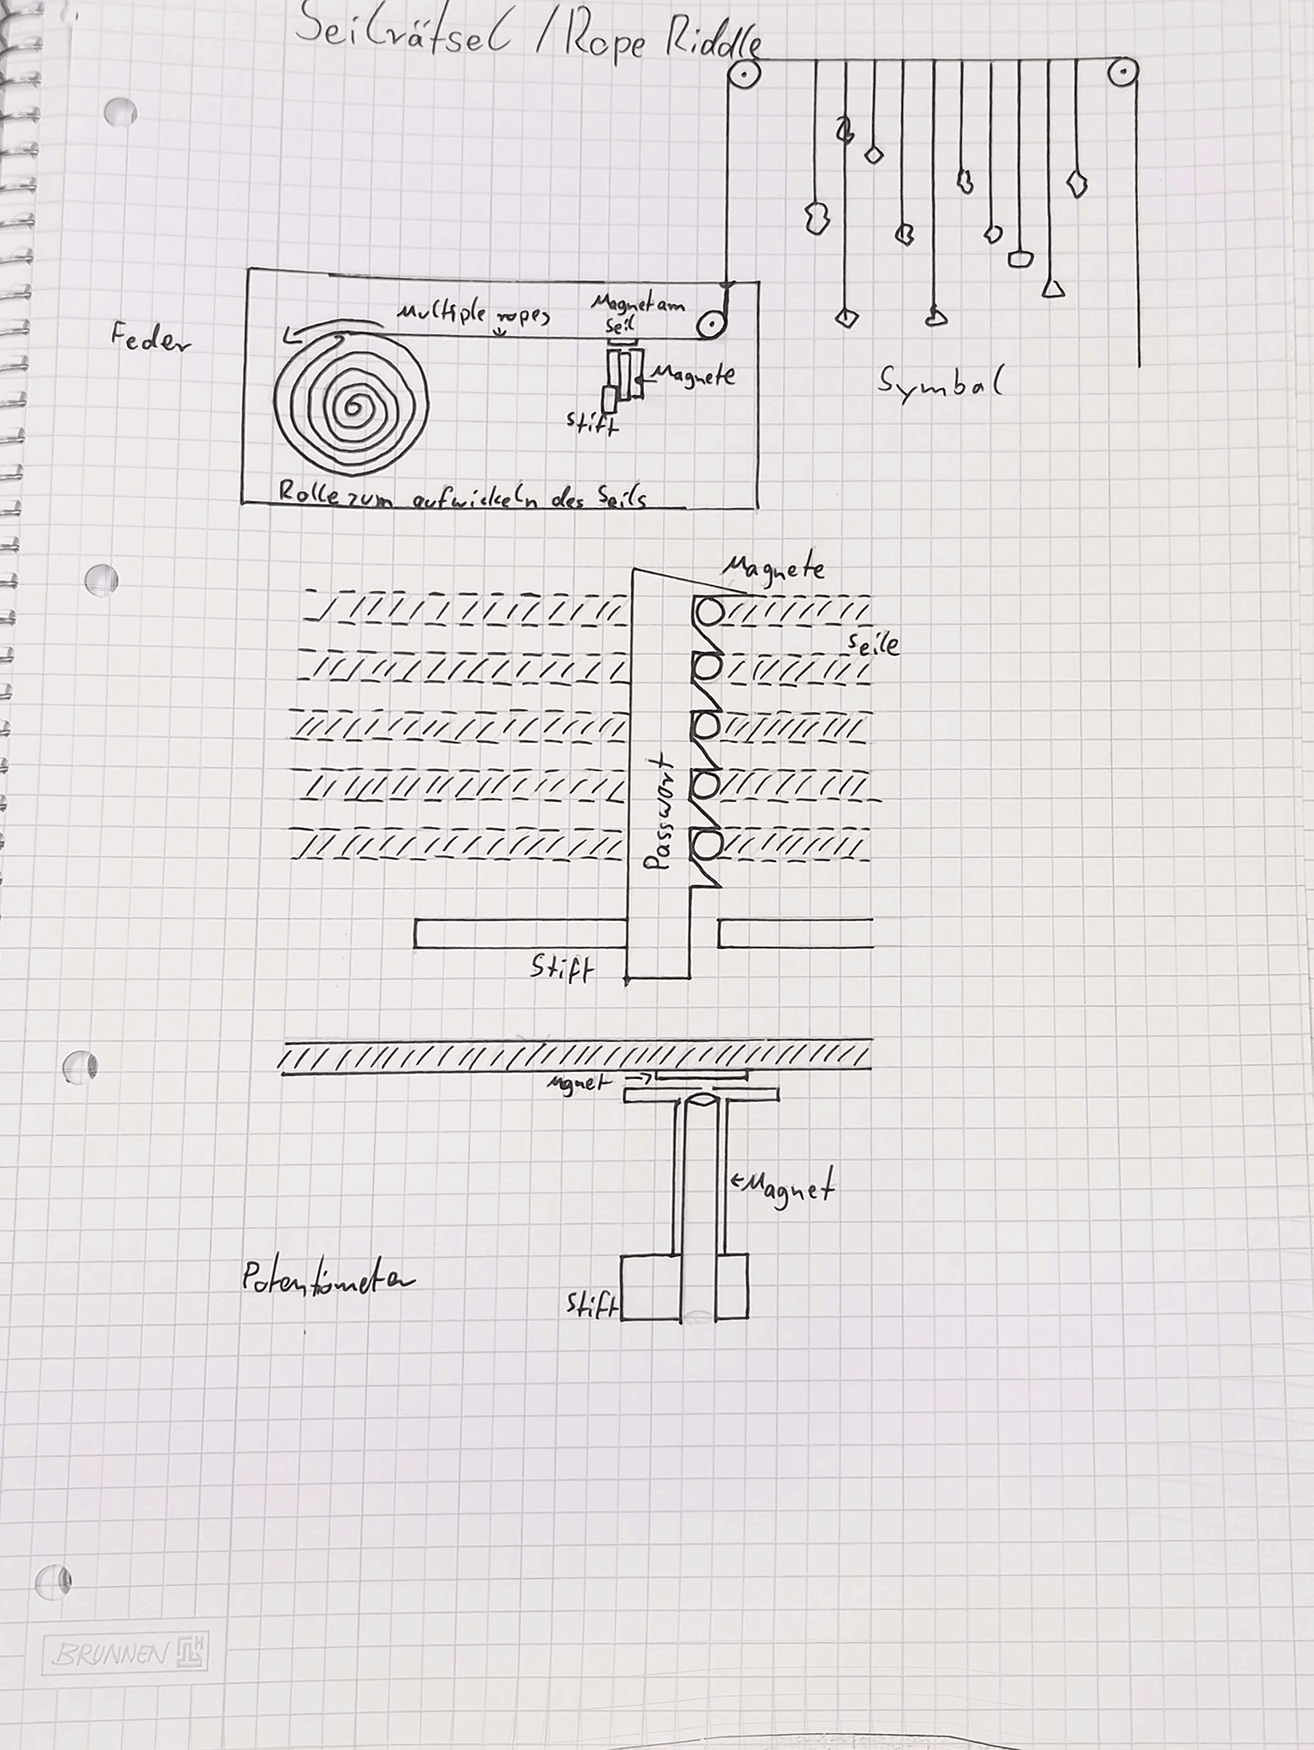 Seilrätsel / Rope Riddle
Feder
Multiple ropes
Magnet am
Seil
Magnete
Stift
Symbal
Rolle zum aufwickeln des Seils
Magnete
Seile
Passwort
Stift
Mgnet
Magnet
Potentiometer
Stift
BRUNNEN